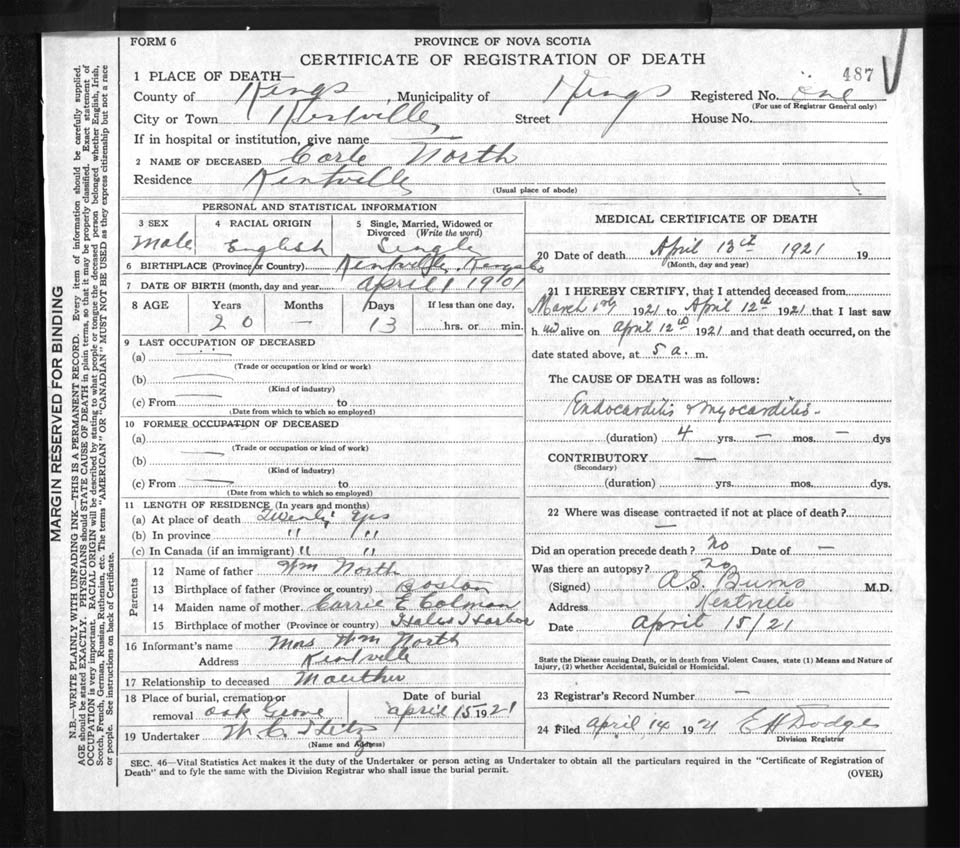 FORM 6
PROVINCE OF NOVA SCOTIA
CERTIFICATE OF REGISTRATION OF DEATH
487
1 PLACE OF DEATH—
County of Kings, Municipality of Kings Registered No. one
(For use of Registrar General only)
City or Town Kentville Street House No.
If in hospital or institution, give name —
2 NAME OF DECEASED Carle North
Residence Kentville
(Usual place of abode)
PERSONAL AND STATISTICAL INFORMATION
3 SEX 4 RACIAL ORIGIN 5 Single, Married, Widowed or Divorced (Write the word)
Male English Single
6 BIRTHPLACE (Province or Country) Kentville, Kings Co
7 DATE OF BIRTH (month, day and year) april 1 1901
8 AGE Years Months Days If less than one day,
20 — 13 hrs. or min.
9 LAST OCCUPATION OF DECEASED
(a) —
(Trade or occupation or kind or work)
(b) —
(Kind of industry)
(c) From — to
(Date from which to which so employed)
10 FORMER OCCUPATION OF DECEASED
(a) —
(Trade or occupation or kind of work)
(b) —
(Kind of industry)
(c) From — to
(Date from which to which so employed)
11 LENGTH OF RESIDENCE (In years and months)
(a) At place of death Twenty yrs
(b) In province " "
(c) In Canada (if an immigrant) " "
Parents
12 Name of father Wm North
13 Birthplace of father (Province or country) Boston
14 Maiden name of mother Carrie E Colman
15 Birthplace of mother (Province or country) Halls Harbor
16 Informant's name Mrs Wm North
Address Kentville
17 Relationship to deceased Mouther
18 Place of burial, cremation or removal oak Grove Date of burial april 15 1921
19 Undertaker W. C.
(Name and Address)
MEDICAL CERTIFICATE OF DEATH
20 Date of death April 13th 1921 19
(Month, day and year)
21 I HEREBY CERTIFY, that I attended deceased from
March 1921 to April 12th 1921 that I last saw
h im alive on april 12th 1921 and that death occurred, on the
date stated above, at 5 a. m.
The CAUSE OF DEATH was as follows:
Endocarditis & myocarditis -
(duration) 4 yrs. — mos. — dys
CONTRIBUTORY —
(Secondary)
(duration) yrs. mos. dys.
22 Where was disease contracted if not at place of death?
—
Did an operation precede death? no Date of —
Was there an autopsy? no
(Signed) A.S. Burns M.D.
Address Kentville
Date april 15/21
State the Disease causing Death, or in death from Violent Causes, state (1) Means and Nature of
Injury, (2) whether Accidental, Suicidal or Homicidal.
23 Registrar's Record Number —
24 Filed april 14 1921 E H Dodge
Division Registrar
SEC. 46—Vital Statistics Act makes it the duty of the Undertaker or person acting as Undertaker to obtain all the particulars required in the "Certificate of Registration of
Death" and to fyle the same with the Division Registrar who shall issue the burial permit.
(OVER)
MARGIN RESERVED FOR BINDING
N.B.—WRITE PLAINLY WITH UNFADING INK—THIS IS A PERMANENT RECORD. Every item of information should be carefully supplied.
AGE should be stated EXACTLY. PHYSICIANS should STATE CAUSE OF DEATH in plain terms, so that it may be properly classified. Exact statement of
OCCUPATION is very important. RACIAL ORIGIN will be described by stating to what people or tongue the deceased person belonged whether English, Irish,
Scotch, French, German, Russian, Ruthenian, etc. The terms "AMERICAN" OR "CANADIAN" MUST NOT BE USED as they express citizenship but not a race
or people. See instructions on back of Certificate.